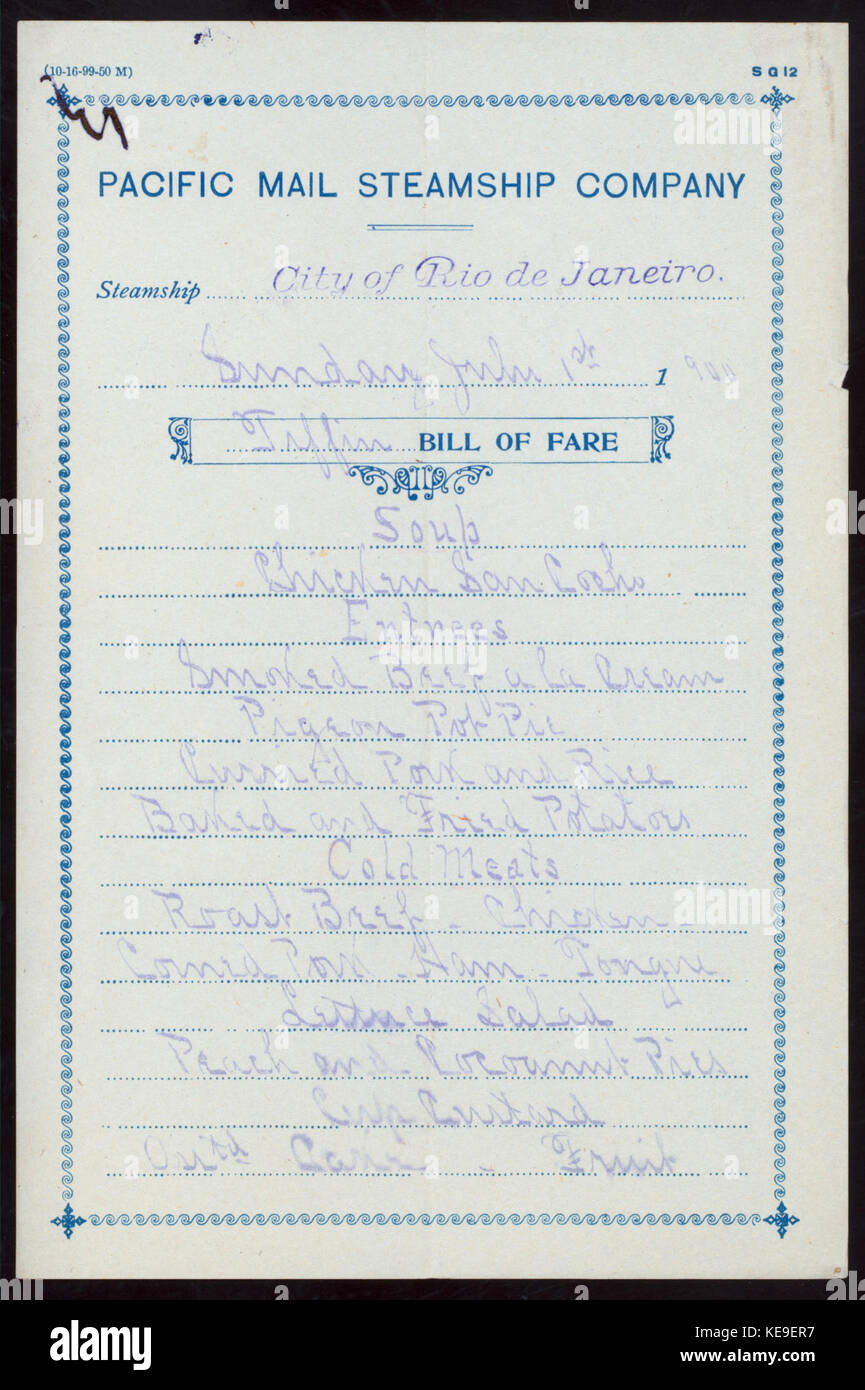 (10-16-99-50 M) S G 12
PACIFIC MAIL STEAMSHIP COMPANY
Steamship City of Rio de Janeiro.
Sunday July 1st 1900
Tiffin BILL OF FARE
Soup
Chicken San Cocho
Entrees
Smoked Beef a la Cream
Pigeon Pot Pie
Curried Pork and Rice
Baked and Fried Potatoes
Cold Meats
Roast Beef - Chicken -
Corned Pork - Ham - Tongue
Lettuce Salad
Peach and Cocoanut Pies
Cup Custard
Cake - Fruit
alamy
Image ID: KE9ER7
www.alamy.com